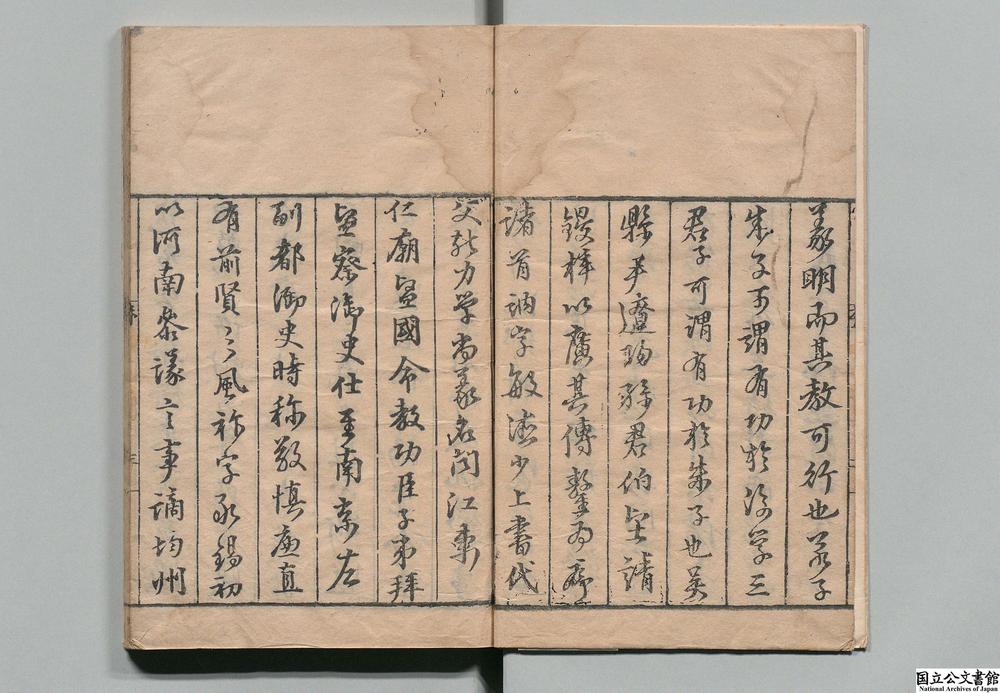 義明而其教可行也若子
朱子可謂有功於後學三
君子可謂有功於朱子也吳
縣尹遼陽孫君伯堅請
鋟梓以廣其傳
諸首訥字敏德少上書代
父能力學尚義名聞江東
仁廟監國命教功臣子弟拜
監察御史仕至南京左
副都御史時称敬慎廉直
有前賢之風祚字永錫初
以河南參議言事謫均州
国立公文書館
National Archives of Japan